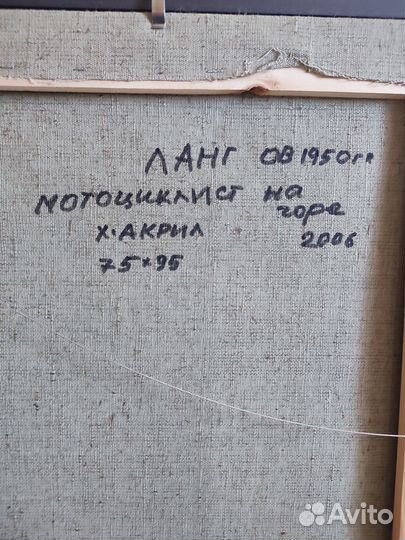 ЛАНГ ОВ 1950 гр
МОТОЦИКЛИСТ на
горе
Х. АКРИЛ 2006
75×95
Avito